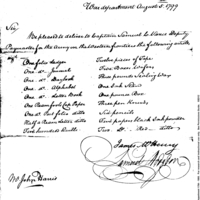 War department August 5. 1799
Sir,
Be pleased to deliver to Captain Samuel
Paymaster for the army on the western frontiers the following articles
One folio Ledger
Twelve pieces of Tape
One do. Journal
Two Boxes Wafers
One do. Daybook
Three pounds Sealing Wax
One do. Alphabet
One Ink Stand
One do. Letter Book
One pounce Box
One Ream
Paper
Three pen Knives
One do. Post folio ditto
Six pencils
Half a Ream Letter ditto
Two papers black Ink powder
Two hundred Quills
Two do. Red ditto
James McHenry
Samuel Hodgdon
Mr. John Harris